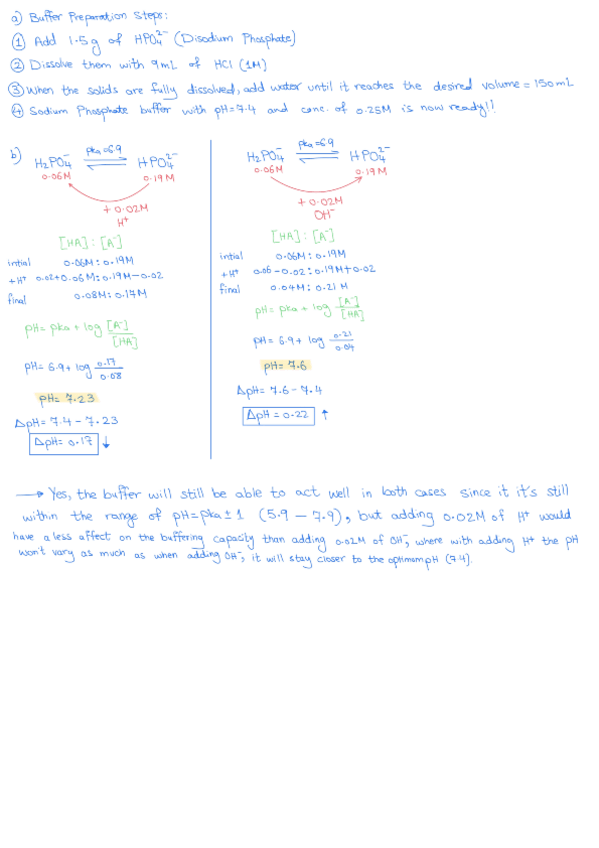 a) Buffer Preparation Steps:
① Add 1.5g of HPO₄²⁻ (Disodium Phosphate)
② Dissolve them with 9mL of HCl (1M)
③ When the solids are fully dissolved, add water until it reaches the desired volume = 150mL
④ Sodium Phosphate buffer with pH=7.4 and conc. of 0.25M is now ready!!
b)
pka=6.9
H₂PO₄⁻ ⇌ HPO₄²⁻
0.06M 0.19M
+ 0.02M
H⁺
[HA] : [A⁻]
intial 0.06M : 0.19M
+H⁺ 0.02+0.06M : 0.19M-0.02
final 0.08M : 0.17M
pH= pka + log [A⁻]/[HA]
pH= 6.9 + log 0.17/0.08
pH= 7.23
ΔpH= 7.4 - 7.23
ΔpH= 0.17 ↓
pka=6.9
H₂PO₄⁻ ⇌ HPO₄²⁻
0.06M 0.19M
+ 0.02M
OH⁻
[HA] : [A⁻]
intial 0.06M : 0.19M
+H⁺ 0.06-0.02 : 0.19M+0.02
final 0.04M : 0.21 M
pH= pka + log [A⁻]/[HA]
pH= 6.9 + log 0.21/0.04
pH= 7.6
ΔpH= 7.6 - 7.4
ΔpH = 0.22 ↑
→ Yes, the buffer will still be able to act well in both cases since it it's still
within the range of pH=pka±1 (5.9 - 7.9), but adding 0.02M of H⁺ would
have a less affect on the buffering capacity than adding 0.02M of OH⁻, where with adding H⁺ the pH
won't vary as much as when adding OH⁻, it will stay closer to the optimum pH (7.4).